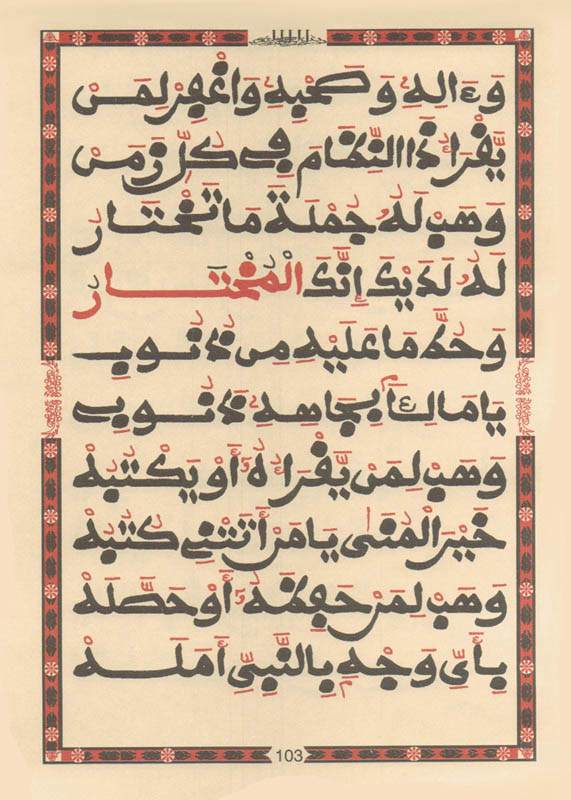 وَءَالِهِ وَصَحْبِهِ وَاغْفِرْ لِمَنْ
يَّقْرَأُ ذَا النِّظَامَ فِي كُلِّ زَمَنْ
وَهَبْ لَهُ جُمْلَةَ مَا تَخْتَارُ
لَهُ لَدَيْكَ إِنَّكَ الْمُخْتَارُ
وَحُطَّ مَا عَلَيْهِ مِن ذُنُوبِ
يَا مَالِئًا بِجَاهِهِ ذَنُوبِي
وَهَبْ لِمَنْ يَّقْرَأُهُ أَوْ يَكْتُبُهْ
خَيْرَ الْمُنَى يَا مَنْ أَتَتْنِي كُتُبُهْ
وَهَبْ لِمَنْ حَفِظَهُ أَوْ حَصَّلَهْ
بِأَيِّ وَجْهٍ بِالنَّبِيِّ أَمَلَهْ
103